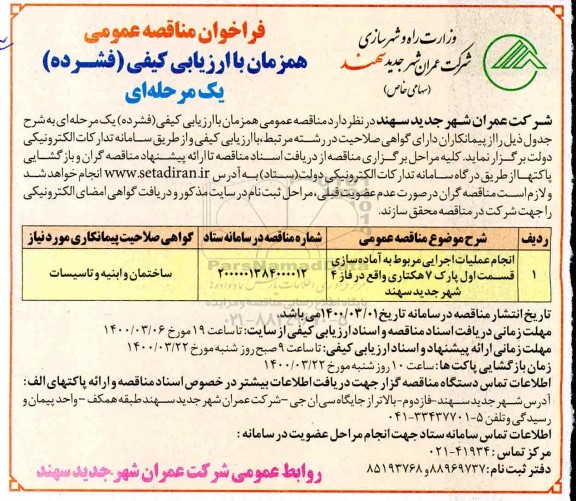 فراخوان مناقصه عمومی
همزمان با ارزیابی کیفی (فشرده)
یک مرحله‌ای
وزارت راه و شهرسازی
شرکت عمران شهر جدید سهند
(سهامی خاص)
شرکت عمران شهر جدید سهند در نظر دارد مناقصه عمومی همزمان با ارزیابی کیفی (فشرده) یک مرحله‌ای به شرح
جدول ذیل را از پیمانکاران دارای گواهی صلاحیت در رشته مرتبط، با ارزیابی کیفی و از طریق سامانه تدارکات الکترونیکی
دولت برگزار نماید. کلیه مراحل برگزاری مناقصه از دریافت اسناد مناقصه تا ارائه پیشنهاد مناقصه گران و بازگشایی
پاکتها از طریق درگاه سامانه تدارکات الکترونیکی دولت (ستاد) به آدرس www.setadiran.ir انجام خواهد شد
و لازم است مناقصه گران در صورت عدم عضویت قبلی، مراحل ثبت نام در سایت مذکور و دریافت گواهی امضای الکترونیکی
را جهت شرکت در مناقصه محقق سازند.
ردیف شرح موضوع مناقصه عمومی شماره مناقصه در سامانه ستاد گواهی صلاحیت پیمانکاری مورد نیاز
۱ انجام عملیات اجرایی مربوط به آماده‌سازی قسمت اول پارک ۷ هکتاری واقع در فاز ۴ شهر جدید سهند ۲۰۰۰۰۰۱۳۸۴۰۰۰۰۱۲ ساختمان و ابنیه و تاسیسات
تاریخ انتشار مناقصه در سامانه تاریخ ۱۴۰۰/۰۳/۰۱ می باشد.
مهلت زمانی دریافت اسناد مناقصه و اسناد ارزیابی کیفی از سایت: تا ساعت ۱۹ مورخ ۱۴۰۰/۰۳/۰۶
مهلت زمانی ارائه پیشنهاد و اسناد ارزیابی کیفی: تا ساعت ۹ صبح روز شنبه مورخ ۱۴۰۰/۰۳/۲۲
زمان بازگشایی پاکت ها: ساعت ۱۰ روز شنبه مورخ ۱۴۰۰/۰۳/۲۲
اطلاعات تماس دستگاه مناقصه گزار جهت دریافت اطلاعات بیشتر در خصوص اسناد مناقصه و ارائه پاکتهای الف:
آدرس شهر جدید سهند- فاز دوم- بالاتر از جایگاه سی ان جی – شرکت عمران شهر جدید سهند طبقه همکف – واحد پیمان و
رسیدگی و تلفن ۵-۳۳۴۳۷۷۰۱-۰۴۱
اطلاعات تماس سامانه ستاد جهت انجام مراحل عضویت در سامانه :
مرکز تماس : ۴۱۹۳۴-۰۲۱
دفتر ثبت نام : ۸۸۹۶۹۷۳۷ و ۸۵۱۹۳۷۶۸
روابط عمومی شرکت عمران شهر جدید سهند